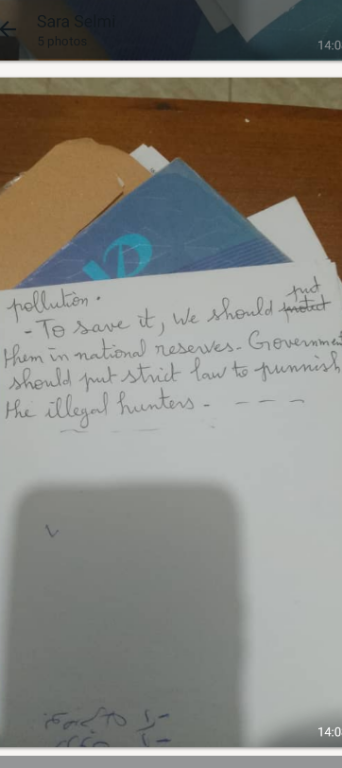 Sara Selmi
5 photos
pollution.
- To save it, we should put protect
them in national reserves. Government
should put strict law to punnish
the illegal hunters -